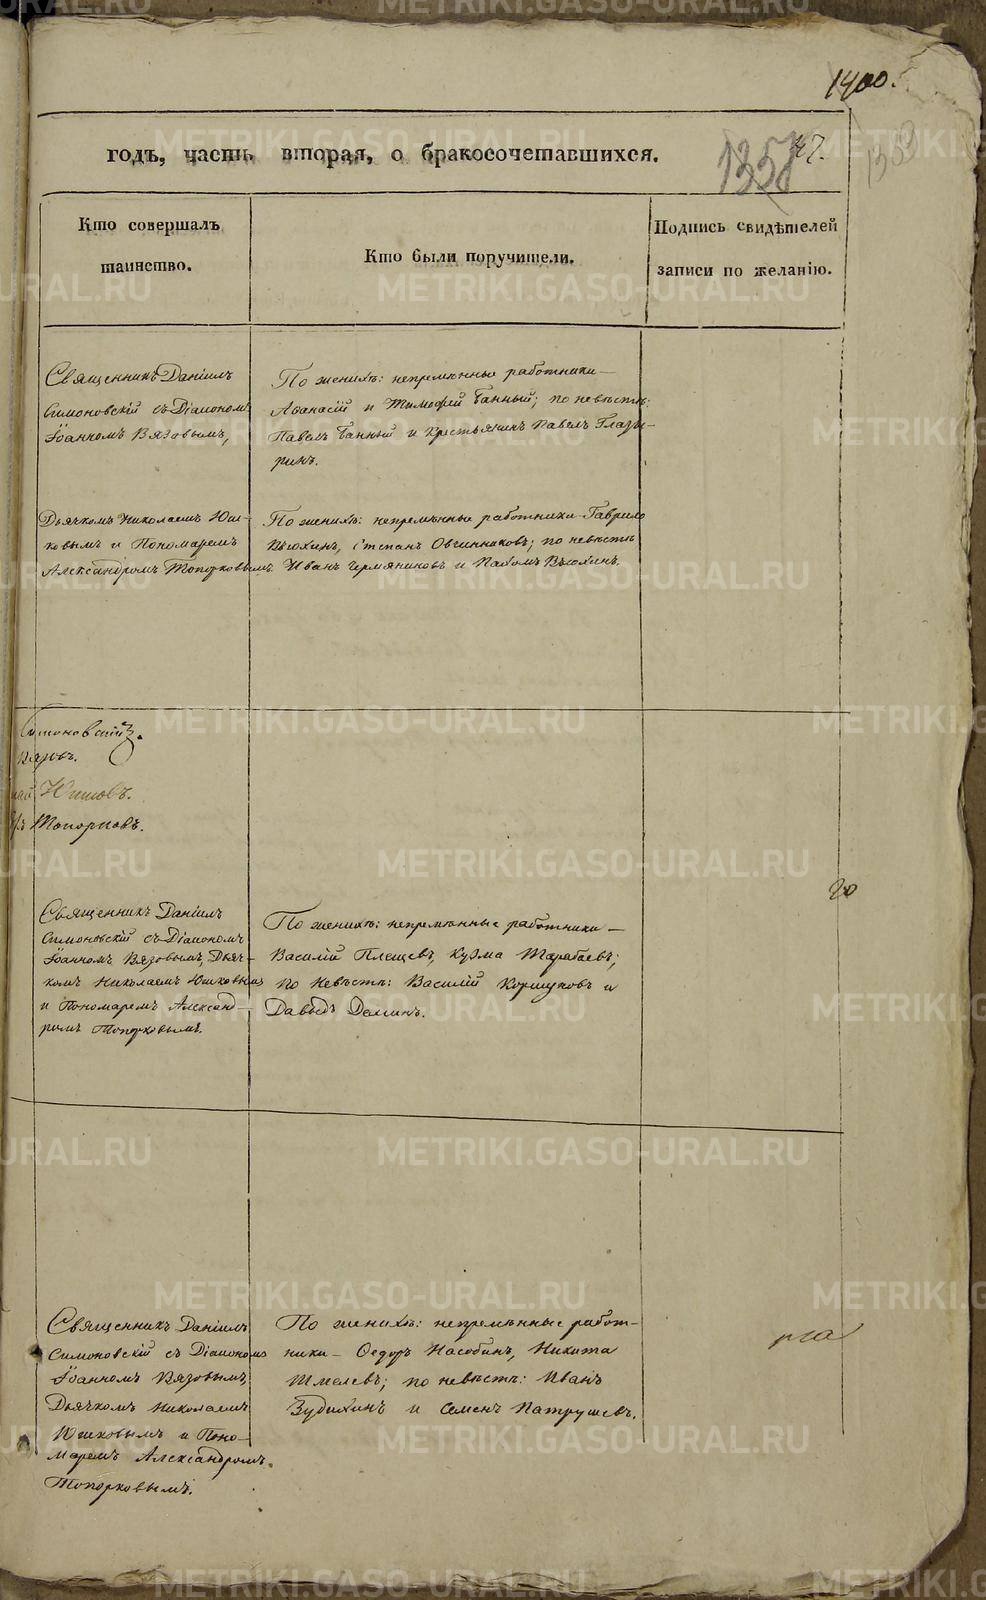 1400.
годъ, часть вторая, о бракосочетавшихся.
1358
47.
1359
Кто совершалъ
таинство.
Кто были поручители.
Подпись свидѣтелей
записи по желанію.
Священникъ Даніилъ
Симоновскій съ Діакономъ
Іоанномъ Вязовымъ,
По женихѣ: непремѣнные работники
Аѳанасій и Тимофей Банный; по невѣстѣ:
Павелъ Банный и крестьянинъ Павелъ Глазы-
ринъ.
Дьячкомъ Николаемъ Юш-
ковымъ и Пономаремъ
Александромъ Топорковымъ.
По женихѣ: непремѣнные работники Гаврило
Вьюхинъ, Степанъ Овчинниковъ; по невѣстѣ
Иванъ Черемяниновъ и Павелъ Вьюхинъ.
Симоновскій.
Вязовъ.
Юшковъ.
Топорковъ.
20
Священникъ Даніилъ
Симоновскій съ Діакономъ
Іоанномъ Вязовымъ, Дьяч-
комъ Николаемъ Юшковымъ
и Пономаремъ Александ-
ромъ Топорковымъ.
По женихѣ: непремѣнные работники
Василій Плещевъ, Кузма Тарабаевъ;
по невѣстѣ: Василій Коршуновъ и
Давыдъ Деминъ.
Священникъ Даніилъ
Симоновскій съ Діакономъ
Іоанномъ Вязовымъ,
Дьячкомъ Николаемъ
Юшковымъ и Поно-
маремъ Александромъ
Топорковымъ.
По женихѣ: непремѣнные работ-
ники Ѳедоръ Насобинъ, Никита
Шмелевъ; по невѣстѣ: Иванъ
Зудихинъ и Семенъ Патрушевъ.
METRIKI.GASO-URAL.RU